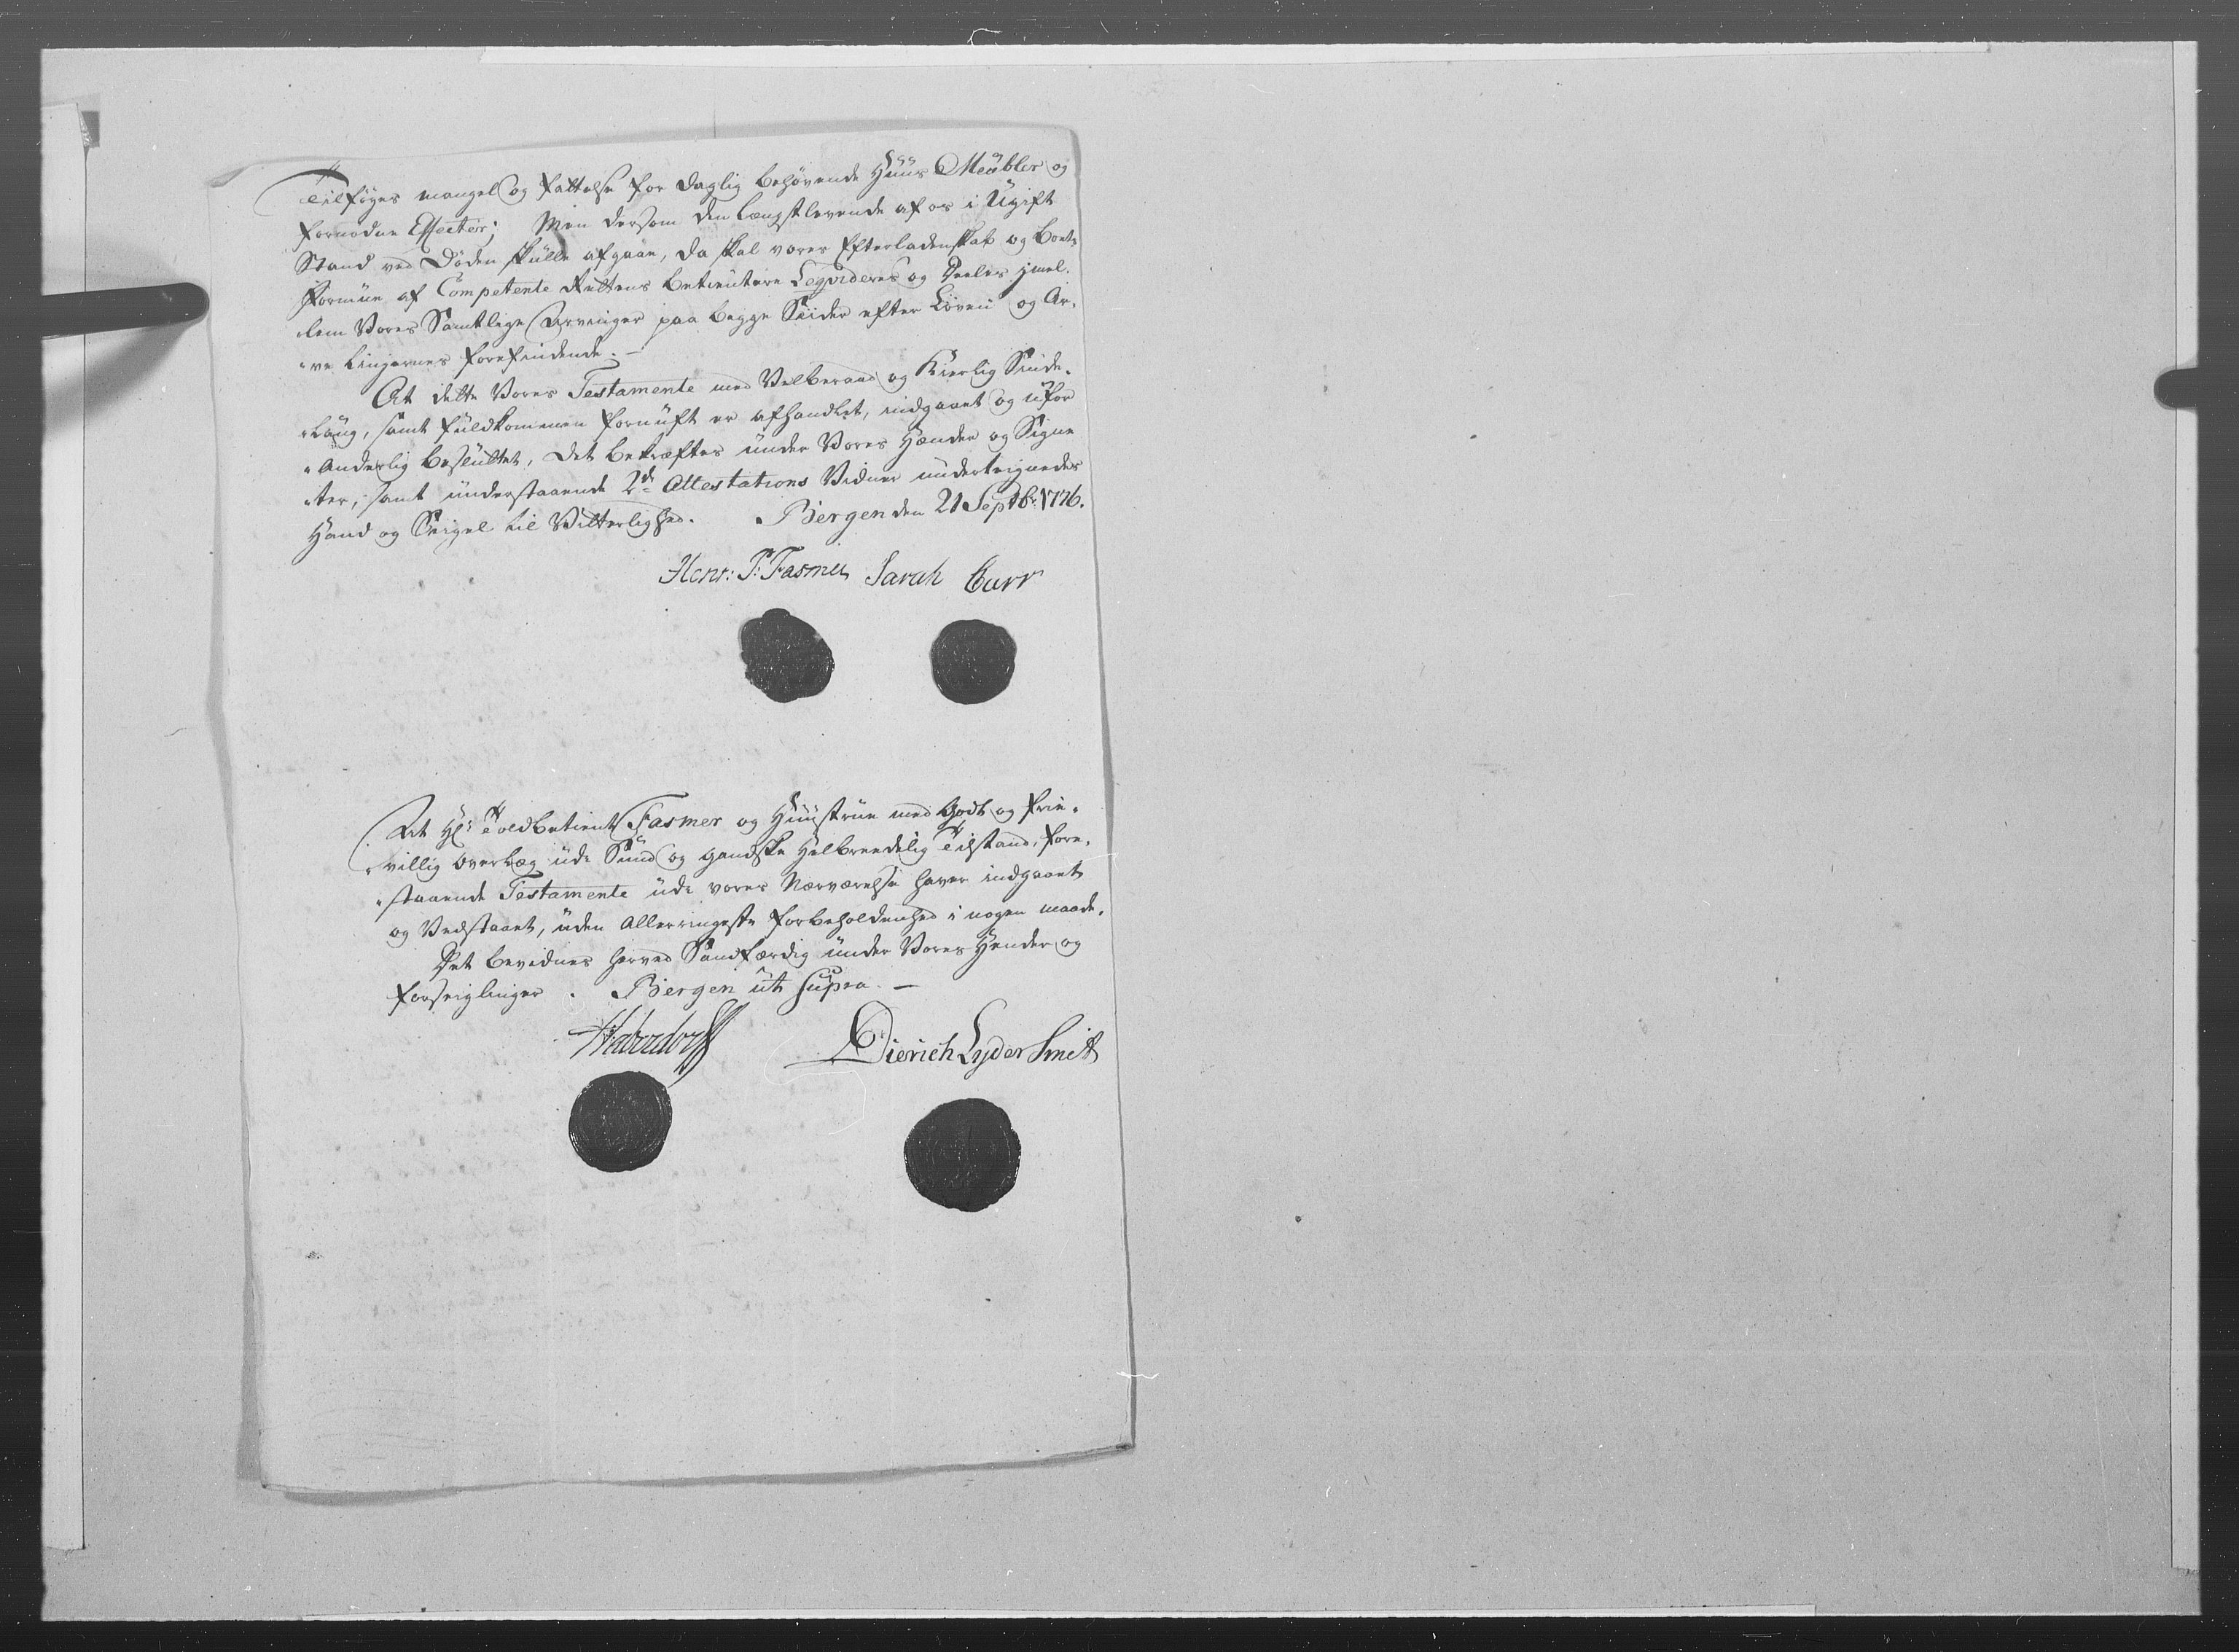 Tilføyes mangel og fattelse for daglig behøvende Huus Meübler og
fornødne Effecter; Men dersom den Længstlevende af os i Ugift
Stand ved Døden skulle afgaae, da skal vores Efterladenskab og Boets
Formue af Competente Rettens betientere Leqvideres og Deeles jmel,
lem Vores Samtlige Arvinger paa begge Siider efter Loven og Ar,
ve Lingernes forefindende. -
At dette Vores Testamente med Velberaad og Kierlig Sinde,
Laug, samt fuldkommen fornuft er afhandlet, indgaaet og ufor
anderlig besluttet, det bekræftes under Vores Hænder og Signe
ter, samt understaaende 2de Attestations Vidner undertegnedes
Haand og Seigel til Vitterlighed. Bergen den 21 Septbr 1776.
Henr: F: Fasmer Sarah Carr
At Hr Toldbetient Fasmer og Huustrue med Godt og frie,
villig overlæg udi Sund og gandske Helbreedelig Tilstand, fore,
staaende Testamente udi vores Nærværelse haver indgaaet
og Vedstaaet, uden Allerringeste forbeholdenhed i nogen maade,
Det bevidnes herved Sandfærdig under Vores Hender og
forseiglinger. Bergen ut supra. -
Dierich Lyder Smit